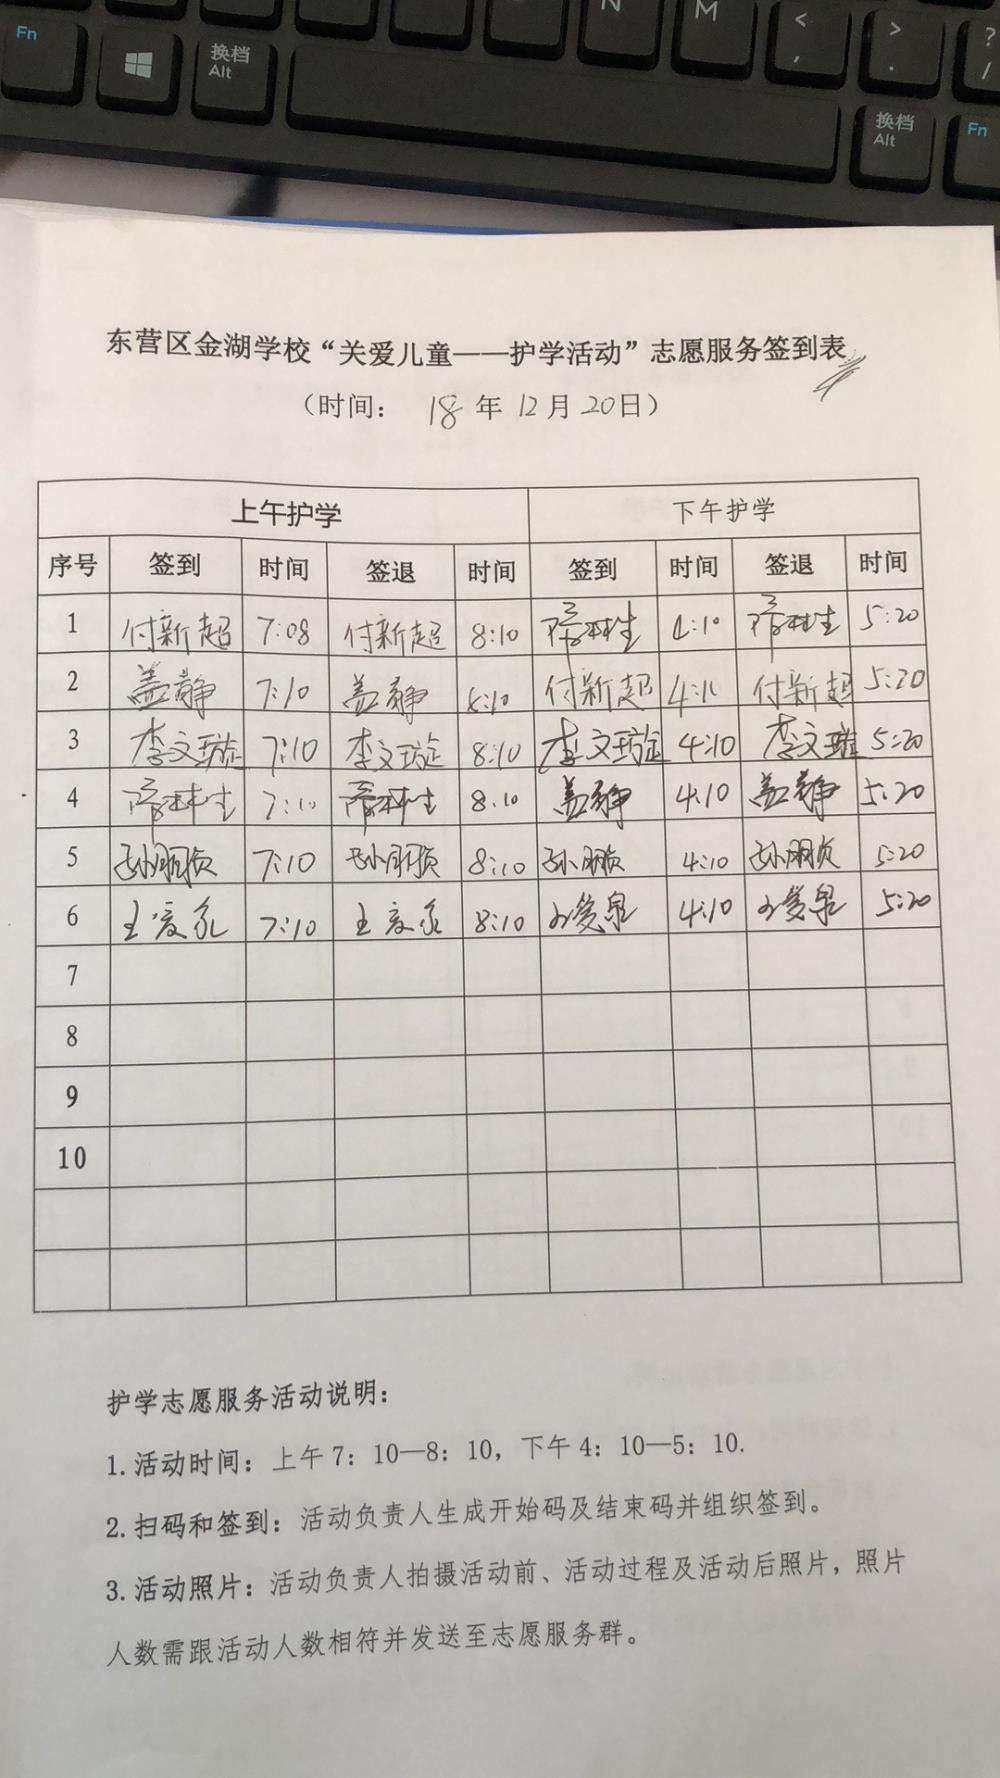 Fn
换档
Alt
N
M
<
,
>
.
?
/
换档
Alt
Fn
东营区金湖学校“关爱儿童——护学活动”志愿服务签到表
（时间： 18 年 12 月 20 日）
上午护学 下午护学
序号 签到 时间 签退 时间 签到 时间 签退 时间
1 付新超 7:08 付新超 8:10 4:10 5:20
2 盖静 7:10 盖静 8:10 付新超 4:10 付新超 5:20
3 李文璇 7:10 李文璇 8:10 李文璇 4:10 李文璇 5:20
4 7:10 8:10 盖静 4:10 盖静 5:20
5 7:10 8:10 4:10 5:20
6 7:10 8:10 4:10 5:20
7
8
9
10
护学志愿服务活动说明：
1.活动时间：上午7：10—8：10，下午4：10—5：10.
2.扫码和签到：活动负责人生成开始码及结束码并组织签到。
3.活动照片：活动负责人拍摄活动前、活动过程及活动后照片，照片
人数需跟活动人数相符并发送至志愿服务群。